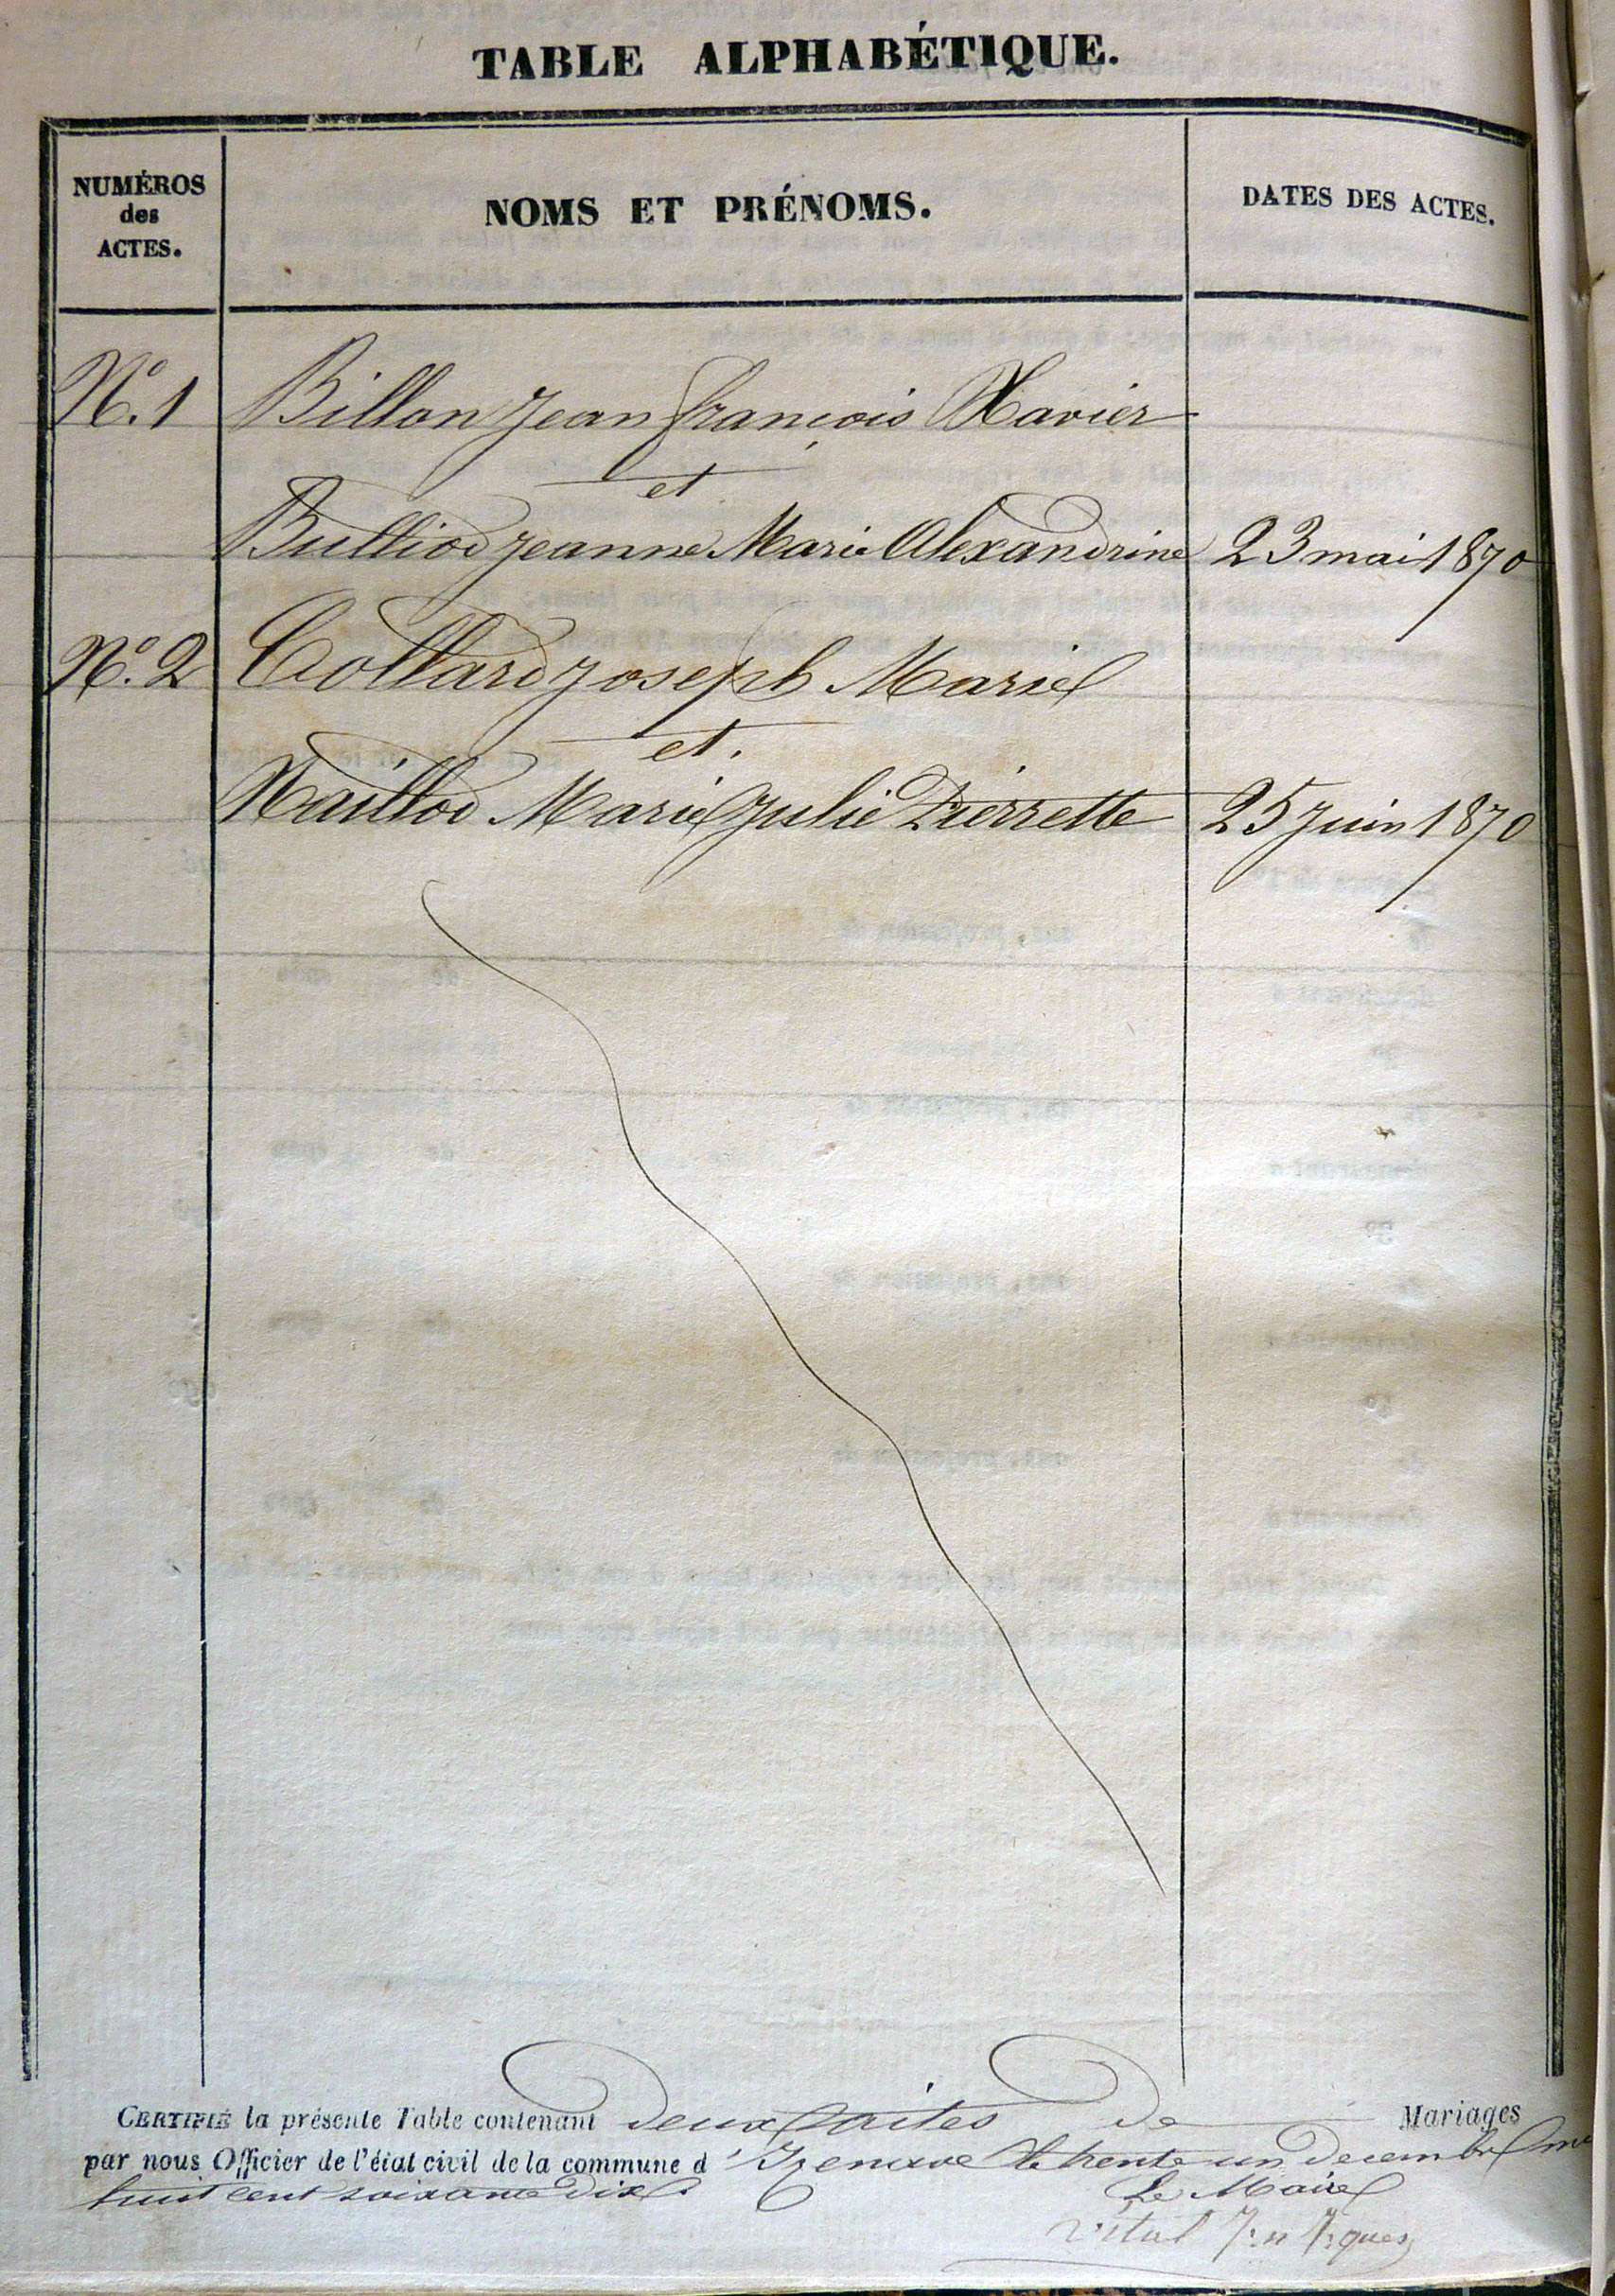 TABLE ALPHABÉTIQUE.
NUMÉROS
des
ACTES.
NOMS ET PRÉNOMS.
DATES DES ACTES.
N° 1 Billon Jean françois Xavier
et
Bulliod Jeanne Marie Alexandrine 23 mai 1870
N° 2 Collard Joseph Marie
et.
Maillod Marie Julie Pierrette 25 Juin 1870
CERTIFIÉ la présente Table contenant deux actes de Mariages
par nous Officier de l'état civil de la commune d'Izenave le trente un Decembre mil
huit cent soixante dix.
Le Maire
Vital Jn Jques